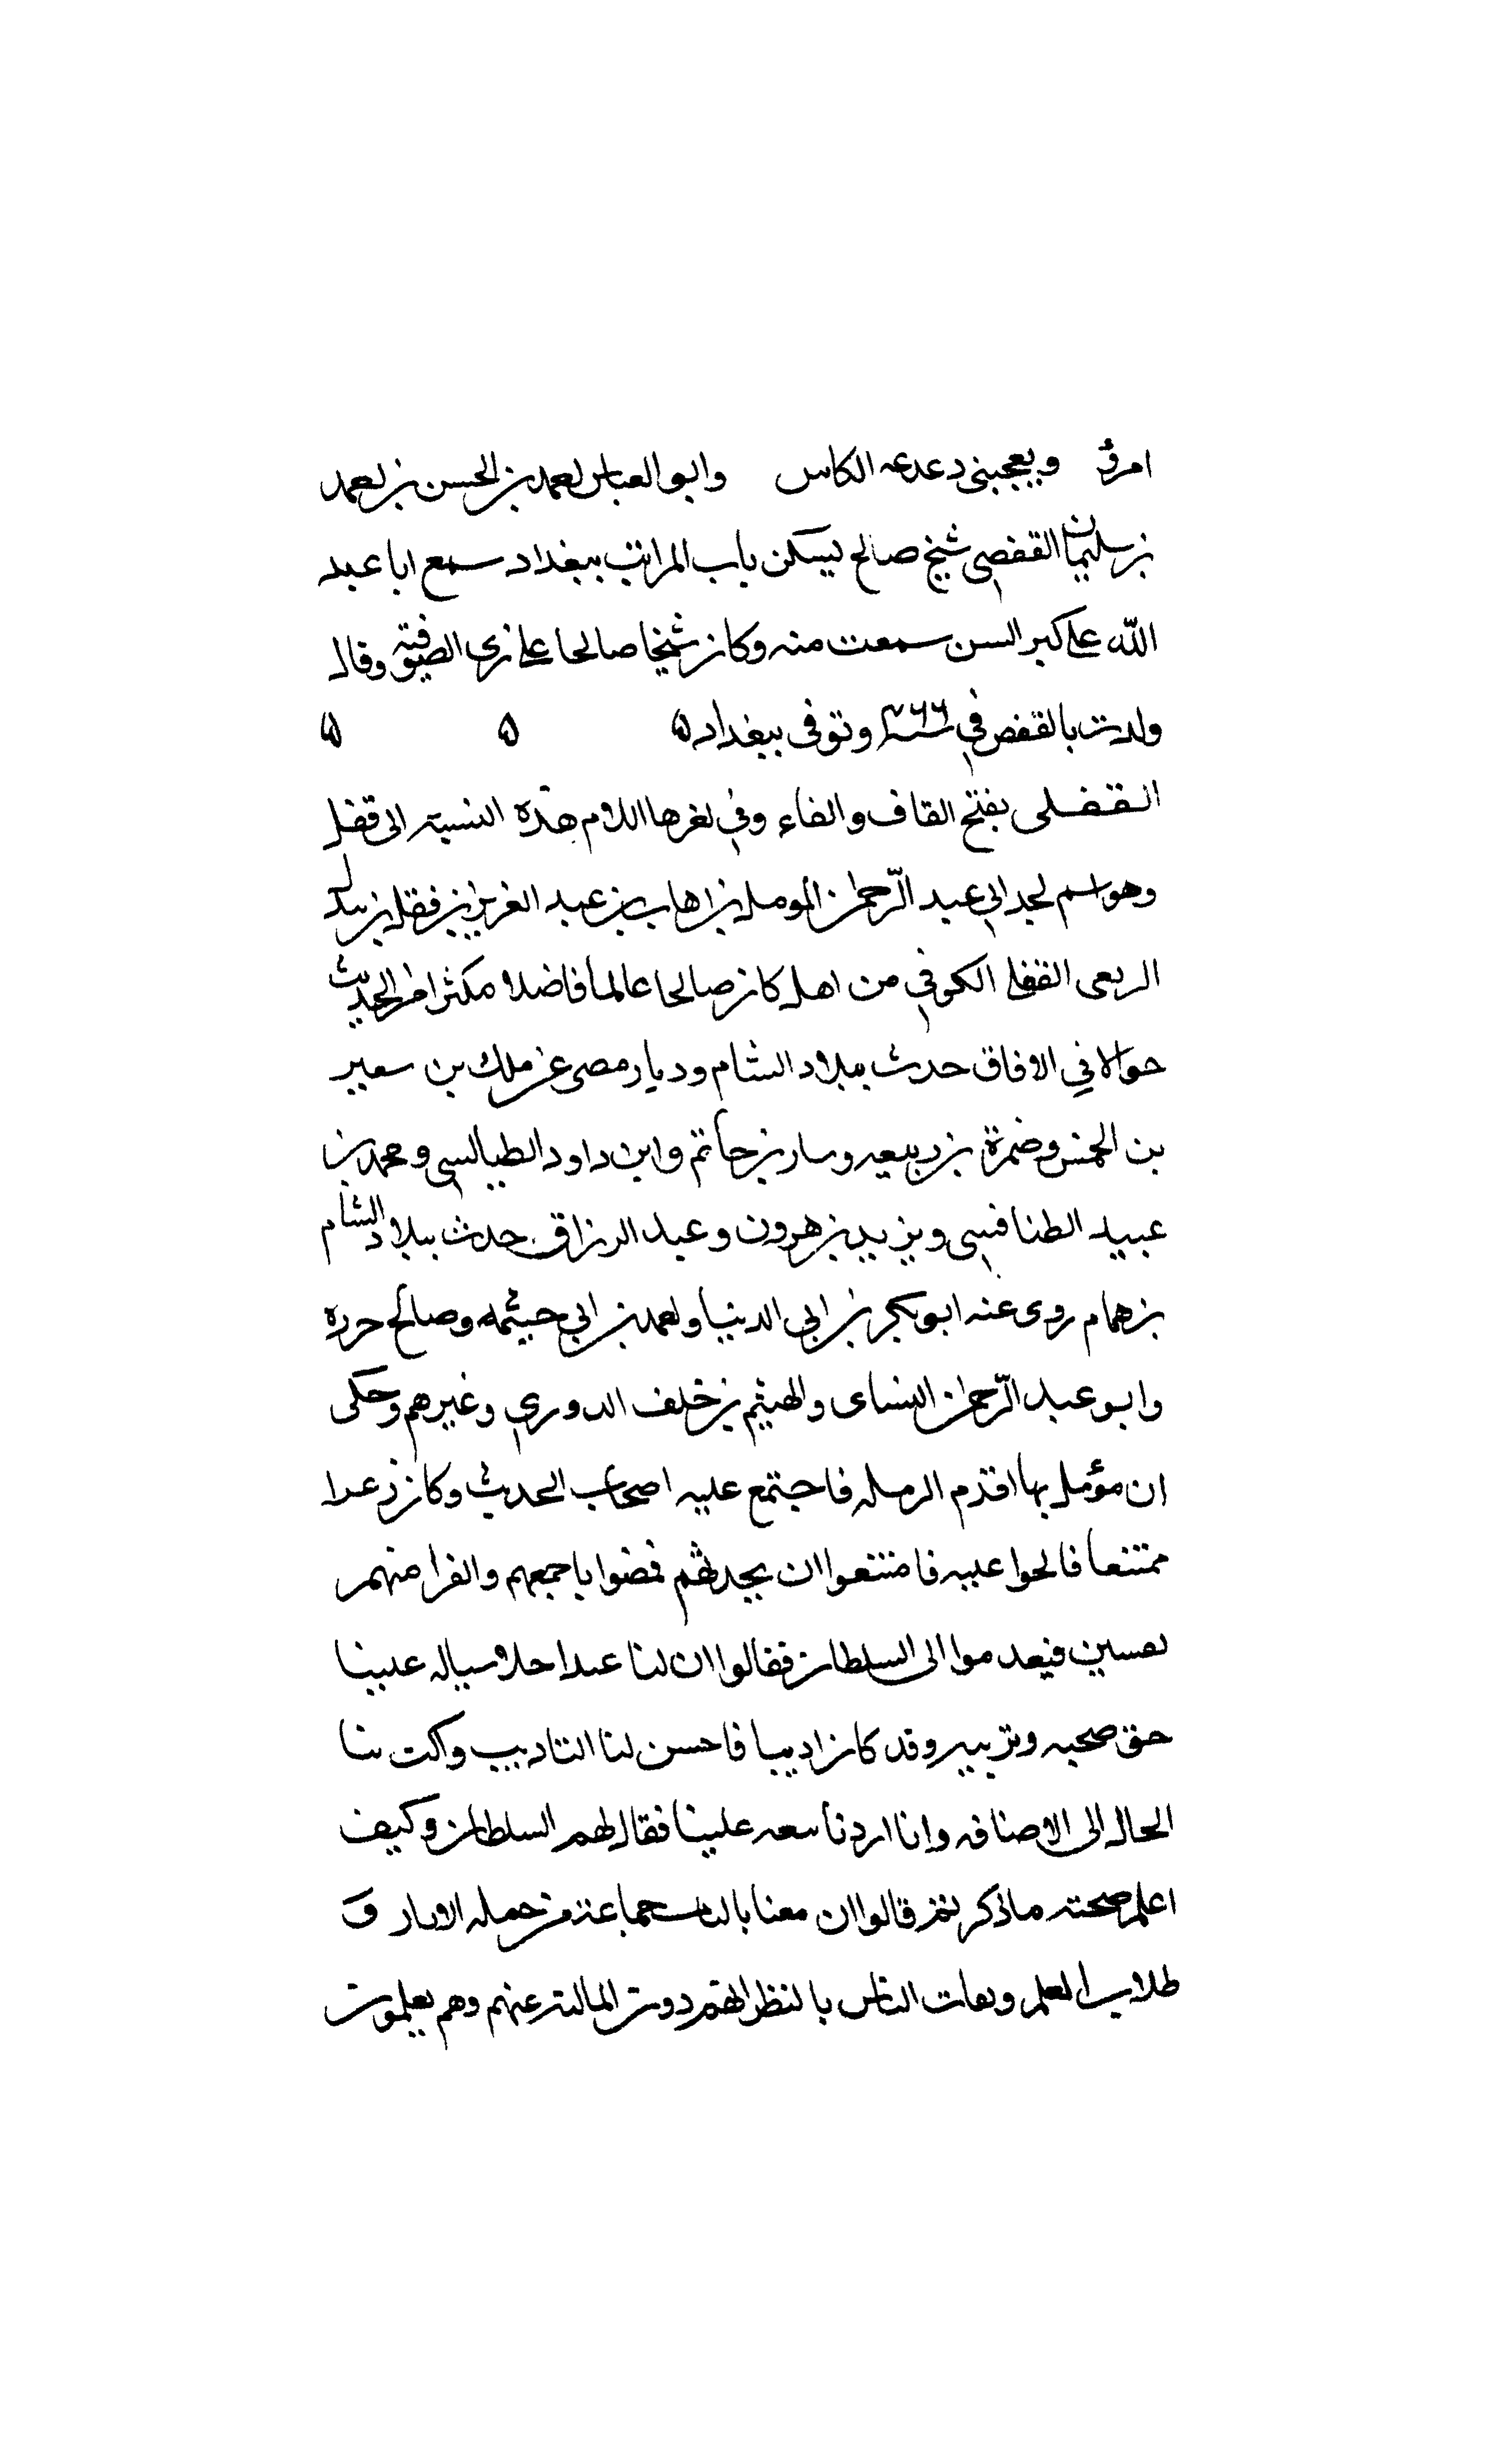 امرؤ ويعجبنى دعدعه الكاس وابو العباس احمد بن الحسن بن احمد
بن سليمان القفصى شيخ صالح يسكن باب المراتب ببغداد سمع ابا عبد
الله على كبر السن سمعت منه وكان شيخا صالحا على زى الصوفية وقال
ولدت بالقفص في وتوفى ببغداد ۵ ۵ ۵
القفلى بفتح القاف والفاء وفي اخرها اللام هذه النسبة الى قفل
وهو اسم لجد ابي عبد الرحمن المومل بن اهاب بن عبد العزيز بن قفل بن
الربعى القفلى الكوفي من اهل كان صالحا عالما فاضلا مكثرا من الحديث
حوالا في الافاق حدث ببلاد الشام وديار مصر عن ملك بن سعير
بن الخمس وضمرة بن ربيعه وسار بن حاتم وابن داود الطيالسي ومحمد بن
عبيد الطنافسي ويزيد بن هرون وعبد الرزاق حدث ببلاد الشام
بن همام روى عنه ابو بكر بن ابي الدنيا واحمد بن ابي خيثمه وصالح جزره
وابو عبد الرحمن النساى والهيثم بن خلف الدوري وغيرهم وحكى
ان مؤمل بها اقدم الرمله فاجتمع عليه اصحاب الحديث وكان زعرا
ممتنعا فالحوا عليه فامتنعوا ان يحدثهم فمضوا باجمعهم والفرا منهم
فيعدموا الى السلطان فقالوا ان لنا عبدا علينا
حق صحبه وتربيه وقد كان اديبا فاحسن لنا التاديب
الحال الى الاضافه وانا اردنا سعه علينا فقال لهم السلطان وكيف
اعلم صحته ما ذكرتم قالوا ان معنا بالباب جماعة من حمله الاثار و
طلاب العلم وبعات الناس بالنظر اليهم دون المسالة عنهم وهم يعلمون